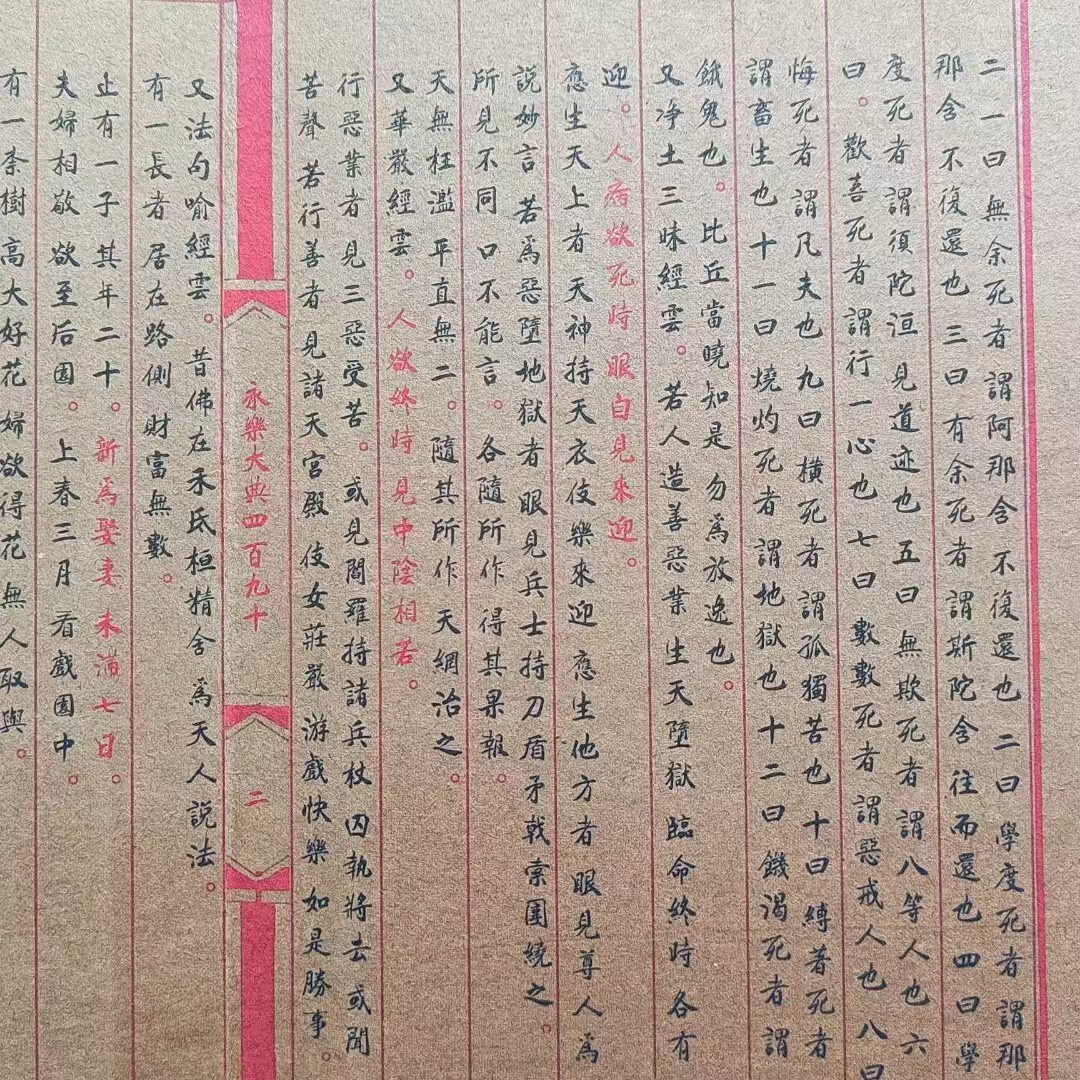 二一曰無余死者謂阿那含不復還也二曰學度死者謂那
那含不復還也三曰有余死者謂斯陀含往而還也四曰學
度死者謂須陀洹見道迹也五曰無欺死者謂八等人也六
曰。歡喜死者謂行一心也七曰數數死者謂惡戒人也八曰
悔死者謂凡夫也九曰橫死者謂孤獨苦也十曰縛著死者
謂畜生也十一曰燒灼死者謂地獄也十二曰饑渴死者謂
餓鬼也。比丘當曉知是勿為放逸也。
又净土三昧經雲。若人造善惡業生天墮獄臨命終時各有
迎。人病欲死時眼自見來迎。
應生天上者天神持天衣伎樂來迎應生他方者眼見尊人為
說妙言若為惡墮地獄者眼見兵士持刀盾矛戟索圍繞之。
所見不同口不能言。各隨所作得其果報。
天無枉濫平直無二。隨其所作天網治之。
又華嚴經雲。人欲終時見中陰相若。
行惡業者見三惡受苦。或見閻羅持諸兵杖囚執將去或聞
苦聲若行善者見諸天宮殿伎女莊嚴游戲快樂如是勝事。
永樂大典四百九十
二
又法句喻經雲。昔佛在禾氏桓精舍為天人說法。
有一長者居在路側財富無數。
止有一子其年二十。新為娶妻未滿七日。
夫婦相敬欲至后園。上春三月看戲園中。
有一柰樹高大好花婦欲得花無人取與。